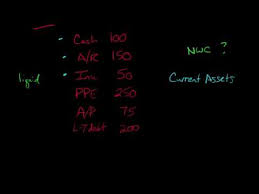 Cash 100
A/R 150
Inv 50
PPE 250
A/P 75
L-T debt 200
liquid
NWC ?
Current Assets